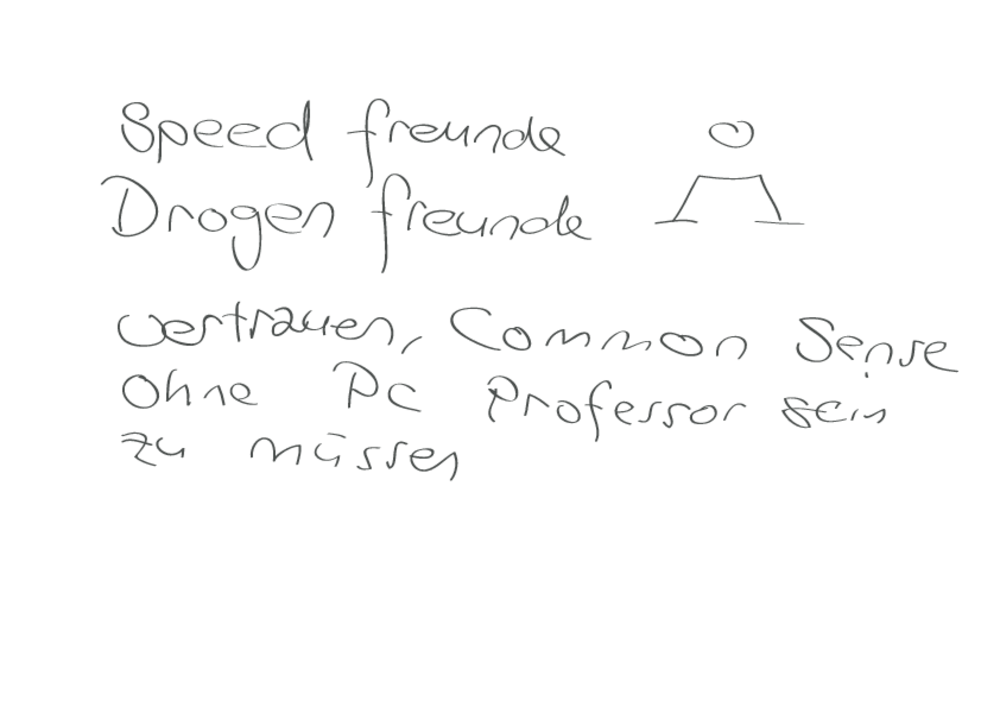 Speed freunde
Drogen freunde
vertrauen, Common Sense
ohne Pc Professor sein
zu müssen